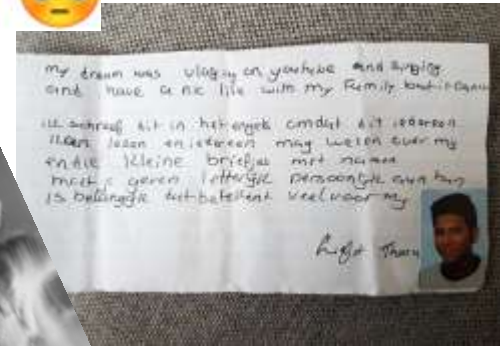 my dream was vloging on youtube and singing
and have a nic life with my Family but it
ik schreef dit in het engels omdat dit iedereen
kan lezen en iedereen mag weten over my
en die kleine briefjes met namen
moet geven letterlijk persoonlijk aan hun
is belangrijk dat betekent veel voor my